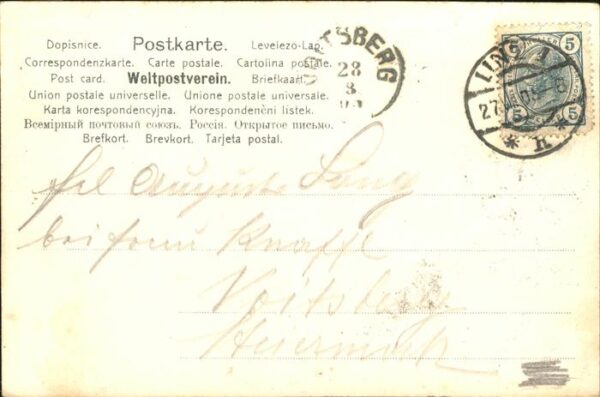 Dopisnice. Postkarte. Levelezo-Lap.
Correspondenzkarte. Carte postale. Cartolina postale.
Post card. Weltpostverein. Briefkaart.
Union postale universelle. Unione postale universale.
Karta korespondencyjna. Korespondenční lístek.
Всемірный почтовый союзъ. Россія. Открытое письмо.
Brefkort. Brevkort. Tarjeta postal.
TSBERG
28
8
5 5
5 5
LINZ 1
27
6
* h *
Frl Auguste Lang
bei Frau Kraffl
Voitsberg
Steiermark